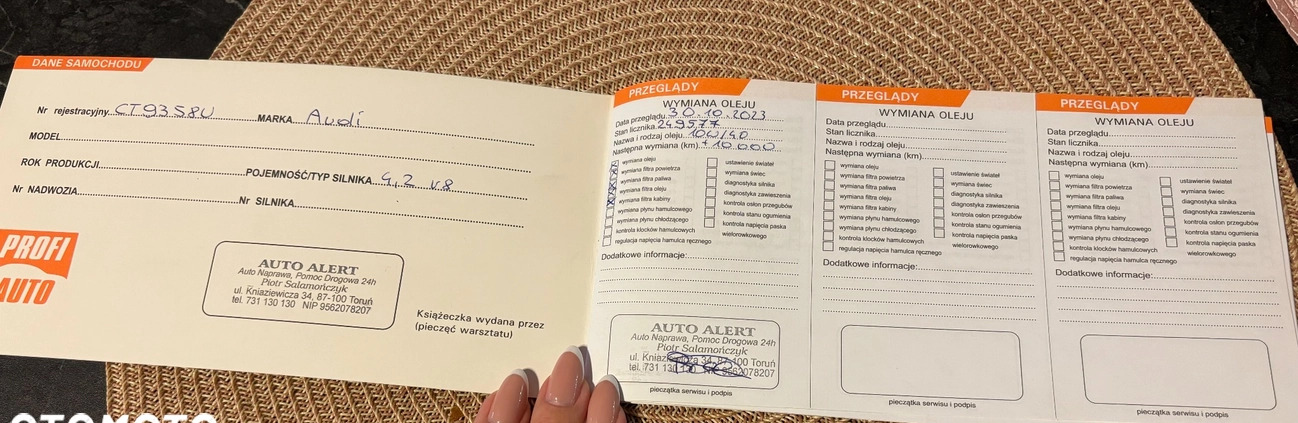 DANE SAMOCHODU
Nr rejestracyjny CT9358U MARKA Audi
MODEL
ROK PRODUKCJI POJEMNOŚĆ/TYP SILNIKA 4,2 V8
Nr NADWOZIA Nr SILNIKA
PROFI
AUTO
AUTO ALERT
Auto Naprawa, Pomoc Drogowa 24h
Piotr Salamończyk
ul. Kniaziewicza 34, 87-100 Toruń
tel. 731 130 130 NIP 9562078207
Książeczka wydana przez
(pieczęć warsztatu)
PRZEGLĄDY
WYMIANA OLEJU
Data przeglądu 30.10.2023
Stan licznika 249577
Nazwa i rodzaj oleju 10W/40
Następna wymiana (km) +10000
wymiana oleju
wymiana filtra powietrza
wymiana filtra paliwa
wymiana filtra oleju
wymiana filtra kabiny
wymiana płynu hamulcowego
wymiana płynu chłodzącego
kontrola klocków hamulcowych
regulacja napięcia hamulca ręcznego
ustawienie świateł
wymiana świec
diagnostyka silnika
diagnostyka zawieszenia
kontrola osłon przegubów
kontrola stanu ogumienia
kontrola napięcia paska
wielorowkowego
Dodatkowe informacje:
AUTO ALERT
Auto Naprawa, Pomoc Drogowa 24h
Piotr Salamończyk
ul. Kniaziewicza 34, 87-100 Toruń
tel. 731 130 130 NIP 9562078207
pieczątka serwisu i podpis
PRZEGLĄDY
WYMIANA OLEJU
Data przeglądu
Stan licznika
Nazwa i rodzaj oleju
Następna wymiana (km)
wymiana oleju
wymiana filtra powietrza
wymiana filtra paliwa
wymiana filtra oleju
wymiana filtra kabiny
wymiana płynu hamulcowego
wymiana płynu chłodzącego
kontrola klocków hamulcowych
regulacja napięcia hamulca ręcznego
ustawienie świateł
wymiana świec
diagnostyka silnika
diagnostyka zawieszenia
kontrola osłon przegubów
kontrola stanu ogumienia
kontrola napięcia paska
wielorowkowego
Dodatkowe informacje:
pieczątka serwisu i podpis
PRZEGLĄDY
WYMIANA OLEJU
Data przeglądu
Stan licznika
Nazwa i rodzaj oleju
Następna wymiana (km)
wymiana oleju
wymiana filtra powietrza
wymiana filtra paliwa
wymiana filtra oleju
wymiana filtra kabiny
wymiana płynu hamulcowego
wymiana płynu chłodzącego
kontrola klocków hamulcowych
regulacja napięcia hamulca ręcznego
ustawienie świateł
wymiana świec
diagnostyka silnika
diagnostyka zawieszenia
kontrola osłon przegubów
kontrola stanu ogumienia
kontrola napięcia paska
wielorowkowego
Dodatkowe informacje:
pieczątka serwisu i podpis
OTOMOTO